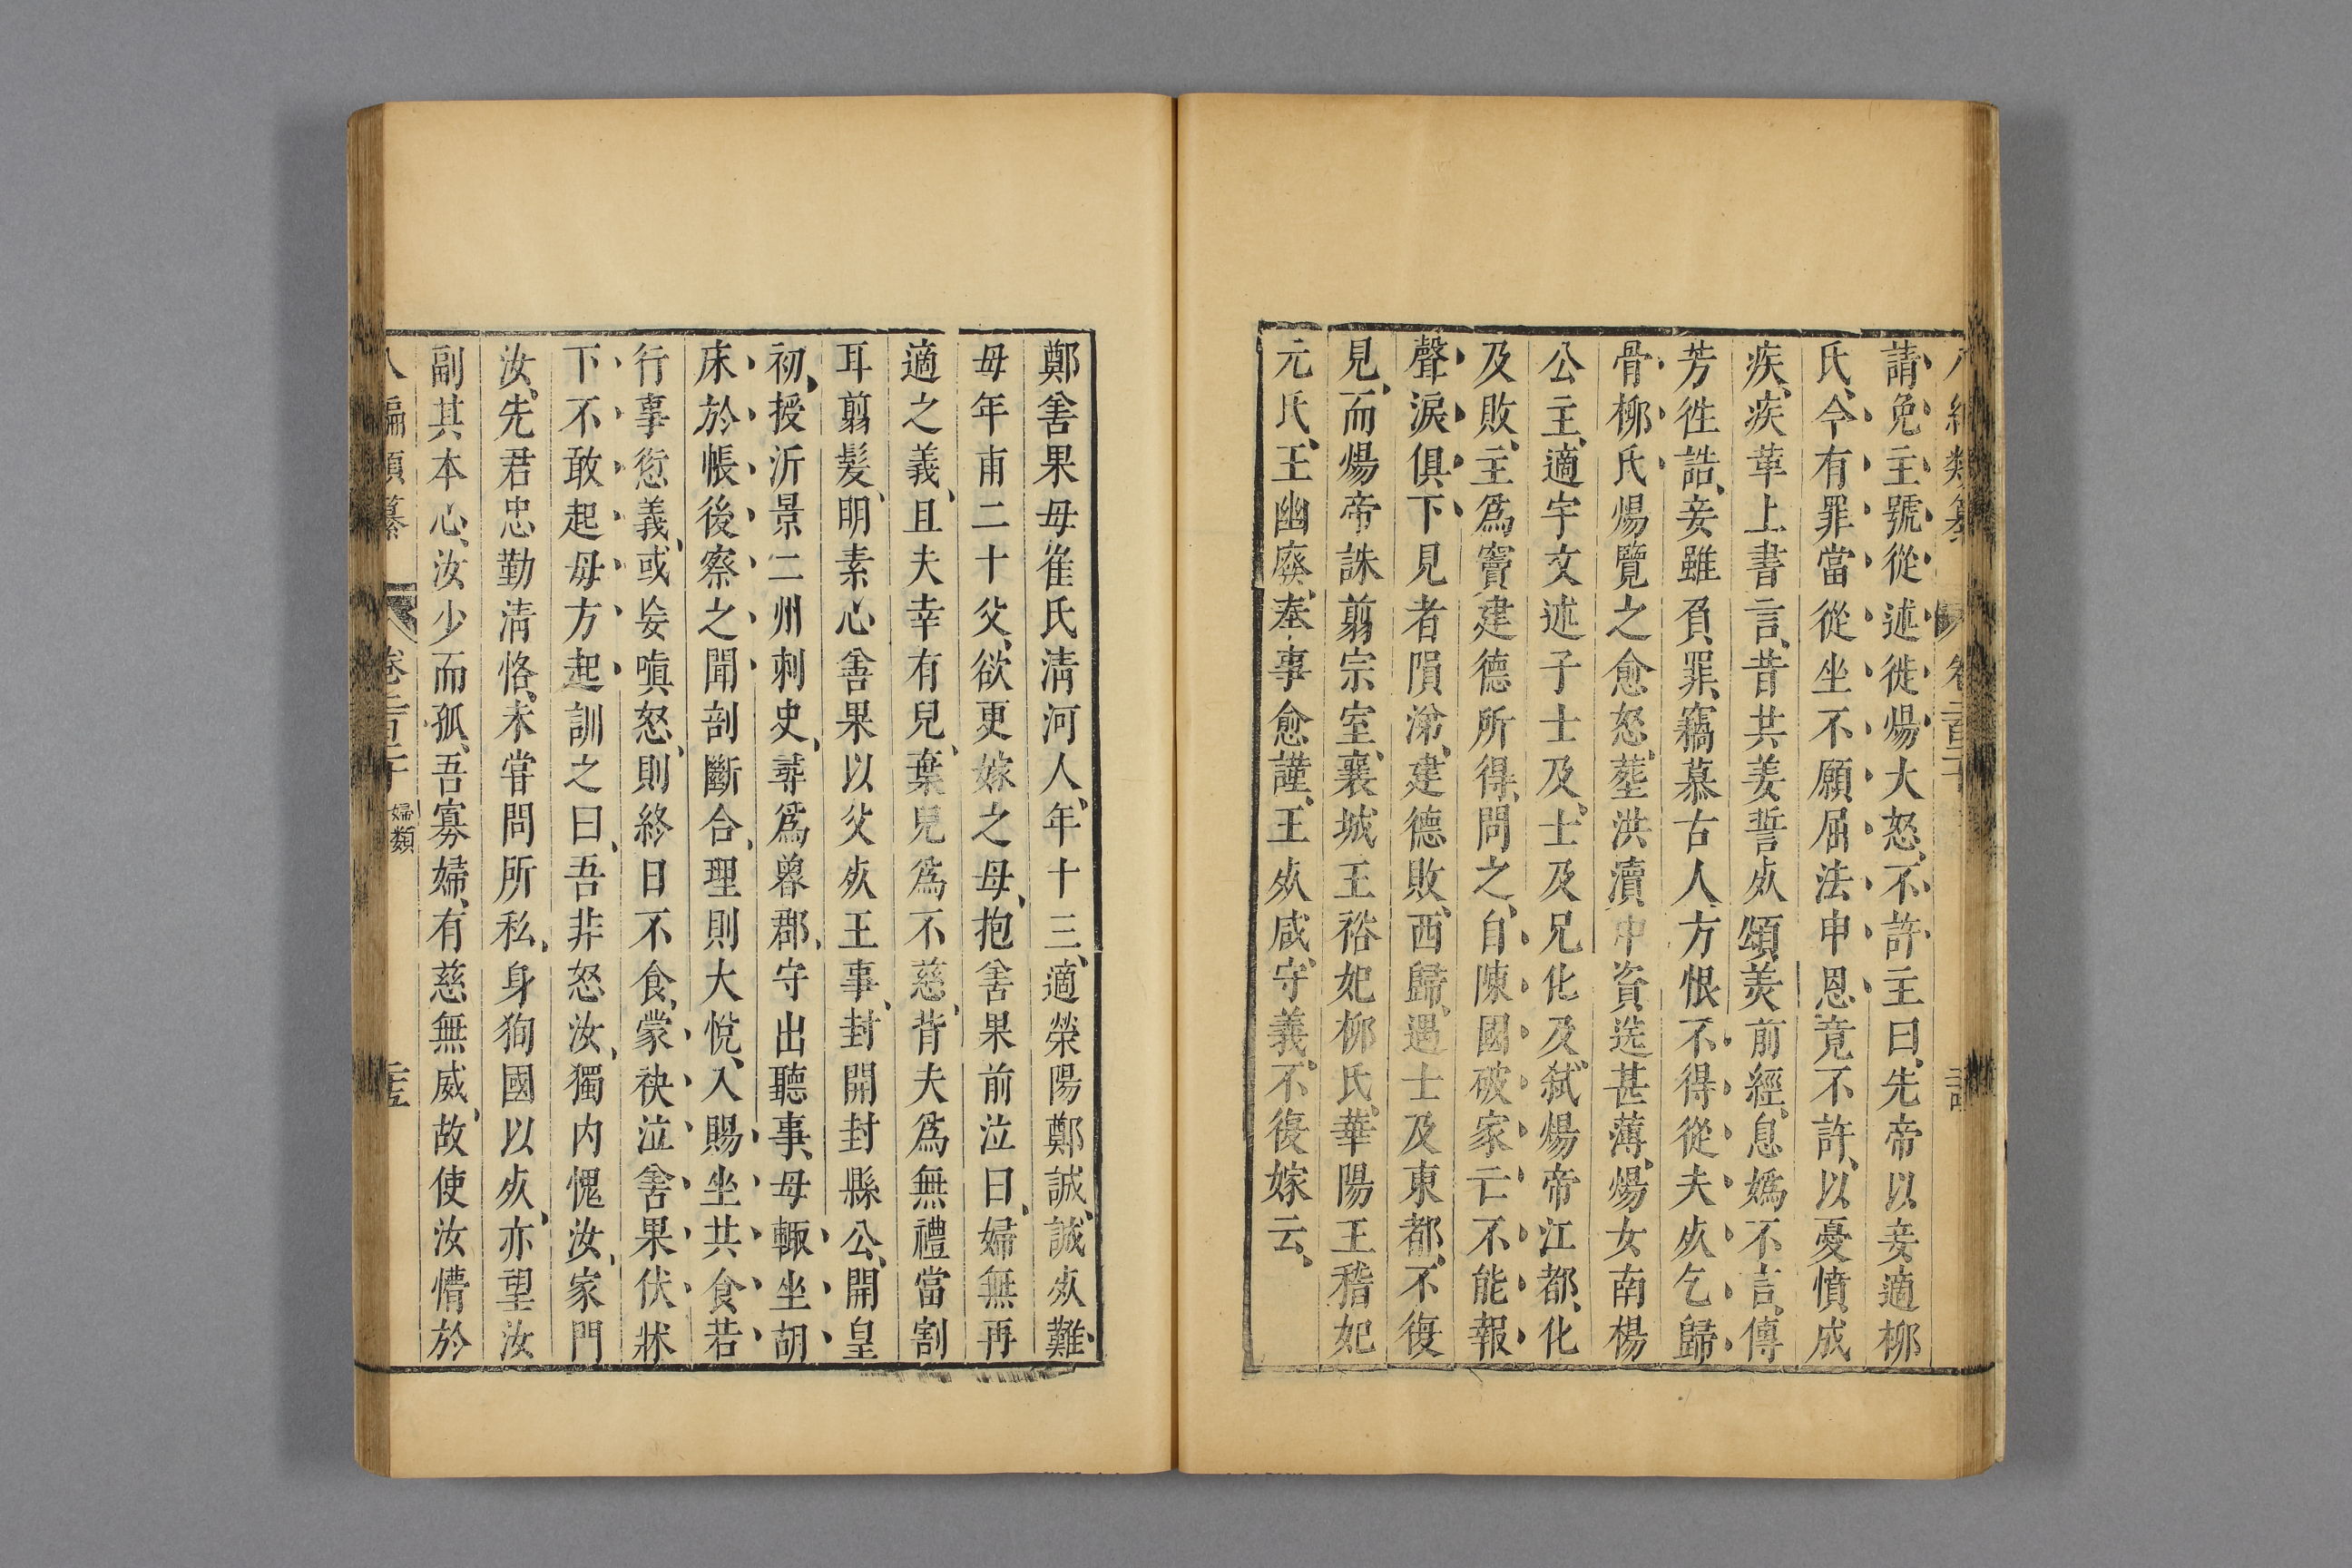 請免主號從述徙煬大怒、不許主曰、先帝以妾適栁
氏、今有罪當從坐不願屈法申恩、竟不許、以憂憤成
疾、疾革上書言、昔共姜誓㱙頌美前經、息嬀不言、傳
芳徃誥、妾雖負罪、竊慕古人、方恨不得從夫㱙乞歸
骨栁氏煬覽之愈怒、塟洪瀆中資送甚薄、煬女南楊
公主、適宇文述子士及、士及兄化及、弑煬帝江都、化
及敗、主爲竇建德所得、問之、自陳國破家亡不能報
聲淚俱下、見者隕涕、建德敗、西歸、遇士及東都、不復
見、而煬帝誅翦宗室、襄城王裕妃栁氏、華陽王稭妃
元氏、王幽廢、奉事愈謹、王㱙咸守義、不復嫁云、
鄭善果母崔氏淸河人、年十三、適滎陽鄭誠、誠㱙難
母年甫二十父、欲更嫁之母、抱善果前泣曰、婦無再
適之義、且夫幸有兒、棄兒爲不慈、背夫爲無禮當割
耳翦髮、明素心善果以父㱙王事、封開封縣公、開皇
初、授沂景二州刺史、尋爲魯郡、守出聽事、母輒坐胡
床於帳後察之聞剖斷合、理則大悅、入賜坐共食若
行事愆義、或妄嗔怒、則終日不食、蒙袂泣善果伏牀
下不敢起母方起訓之曰、吾非怒汝、獨内愧汝、家門
汝、先君忠勤淸恪、未甞問所私、身狥國以㱙、亦望汝
副其本心、汝少而孤、吾寡婦、有慈無威、故使汝懵於
八編類纂
婦類